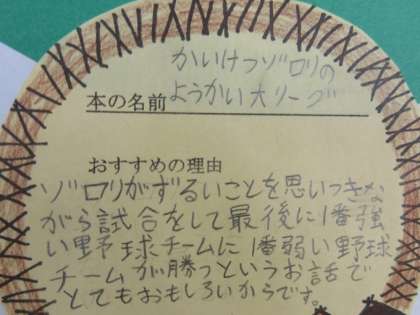 かいけつゾロリの
本の名前 ようかい大リーグ
おすすめの理由
ゾロリがずるいことを思いつきな
がら試合をして最後に1番強
い野球チームに1番弱い野球
チームが勝つというお話で
とてもおもしろいからです。